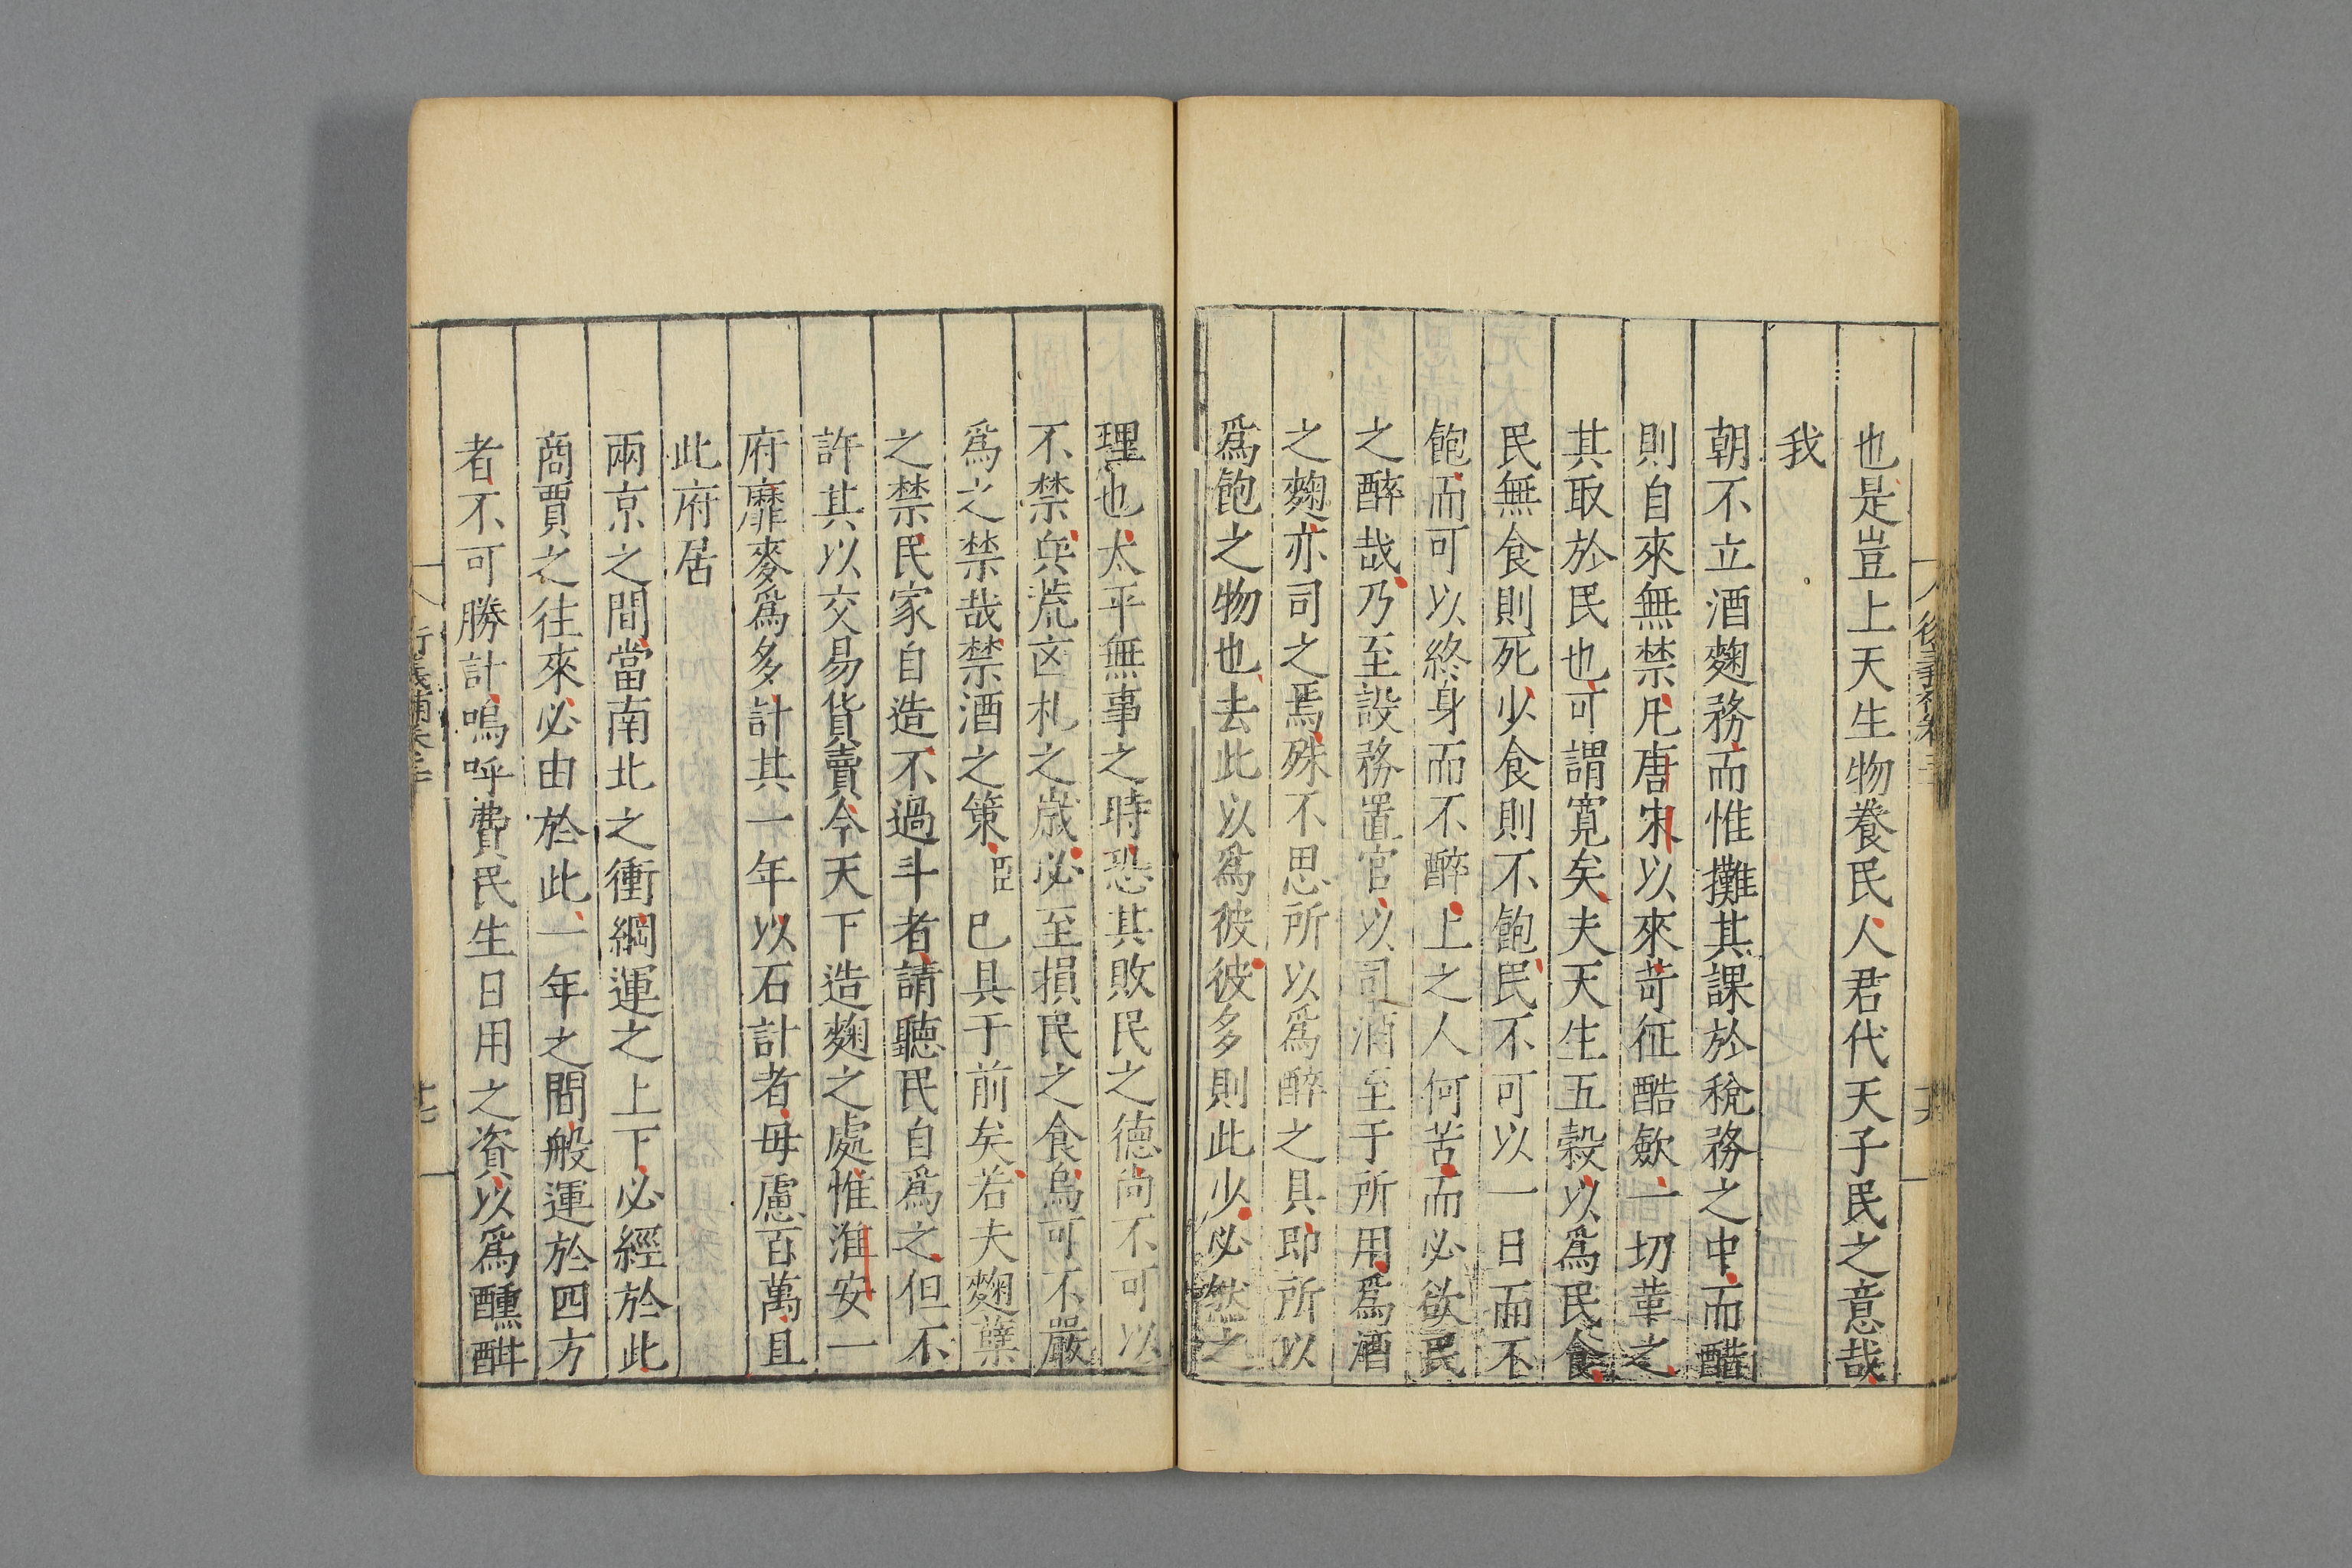 也是豈上天生物養民人君代天子民之意哉
我
朝不立酒麴務而惟攤其課於稅務之中而醋
則自來無禁凡唐宋以來苛征酷歛一切革之
其取於民也可謂寬矣夫天生五穀以爲民食
民無食則死少食則不飽民不可以一日而不
飽而可以終身而不醉上之人何苦而必欲民
之醉哉乃至設務置官以司酒至于所用爲酒
之麴亦司之焉殊不思所以爲醉之具即所以
爲飽之物也去此以爲彼彼多則此少必然之
理也太平無事之時恐其敗民之德尚不可以
不禁兵荒凶札之歲必至損民之食烏可不嚴
爲之禁哉禁酒之策臣已具于前矣若夫麴糵
之禁民家自造不過斗者請聽民自爲之但不
許其以交易貨賣今天下造麴之處惟淮安一
府靡麥爲多計其一年以石計者毋慮百萬且
此府居
兩京之間當南北之衝綱運之上下必經於此
商賈之往來必由於此一年之間般運於四方
者不可勝計嗚呼費民生日用之資以爲醺酣